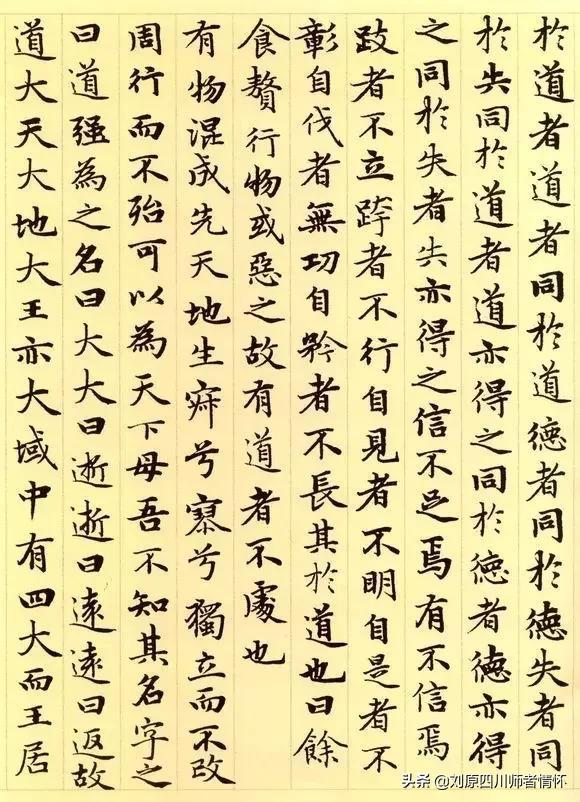 於道者道者同於道德者同於德失者同
於失同於道者道亦得之同於德者德亦得
之同於失者失亦得之信不足焉有不信焉
跂者不立跨者不行自見者不明自是者不
彰自伐者無功自矜者不長其於道也曰餘
食贅行物或惡之故有道者不處也
有物混成先天地生寂兮寥兮獨立而不改
周行而不殆可以為天下母吾不知其名字之
曰道强為之名曰大大曰逝逝曰遠遠曰返故
道大天大地大王亦大域中有四大而王居
头条 @刘原四川师者情怀